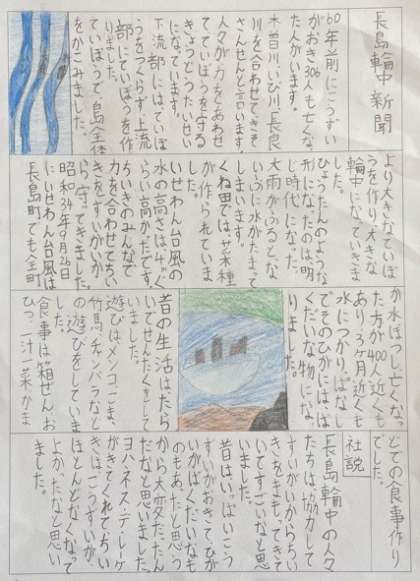 長島輪中新聞
60年前にこうずい
がおき306人も亡くなっ
た人がいます。
木曽川、いび川、長良
川を合わせてきそ
さんせんと言います。
人々が力をあわせ
てていぼうを守る
きょうどうたいせい
になっています。
下流部にはていぼ
うをつくらず上流
部にていぼうを作
りました。
ていぼうで、島全体
をかこみました。
より大きなていぼ
うを作り、大きな
輪中になっていきま
した。
ひょうたんのような
形になったのは明
じ時代になった。
大雨がふるとな
いぶに水がたまって
くね田では、菜種
が作られていま
いせわん台風の
水の高さは4.4mく
らい高かったです。
ちいきのみんなで
力を合わせてちい
きをすいがいか
ら守ってきました。
昭和34年9月26日
にいせわん台風
長島町でも全町
が水ぼつし亡くなっ
た方が400人近くも
あり3ヶ月近くも
水につかりっぱなし
でそのひがいは、ば
くだいな物にな
りました。
昔の生活はたら
いでせんたくをして
いました。
遊びはメンコ、こま、
竹馬、チャンバラなど
の遊びをしていま
した。
食事は箱ぜん、お
ひつ、一汁一菜かま
どでの食事作り
でした。
社説
長島輪中の人々
たちは、協力して
すいがいからちい
きをまもってきて
いてすごいなと思
いました。
昔はいっぱいこう
ずいがおきてひが
いがばくだいなも
のもあったと思う
から大変だったん
だなと思いました。
ヨハネス・デ・レーケ
がきてくれてちい
きはこうずいが、
ほとんどなくなって
よかったなと思い
ました。